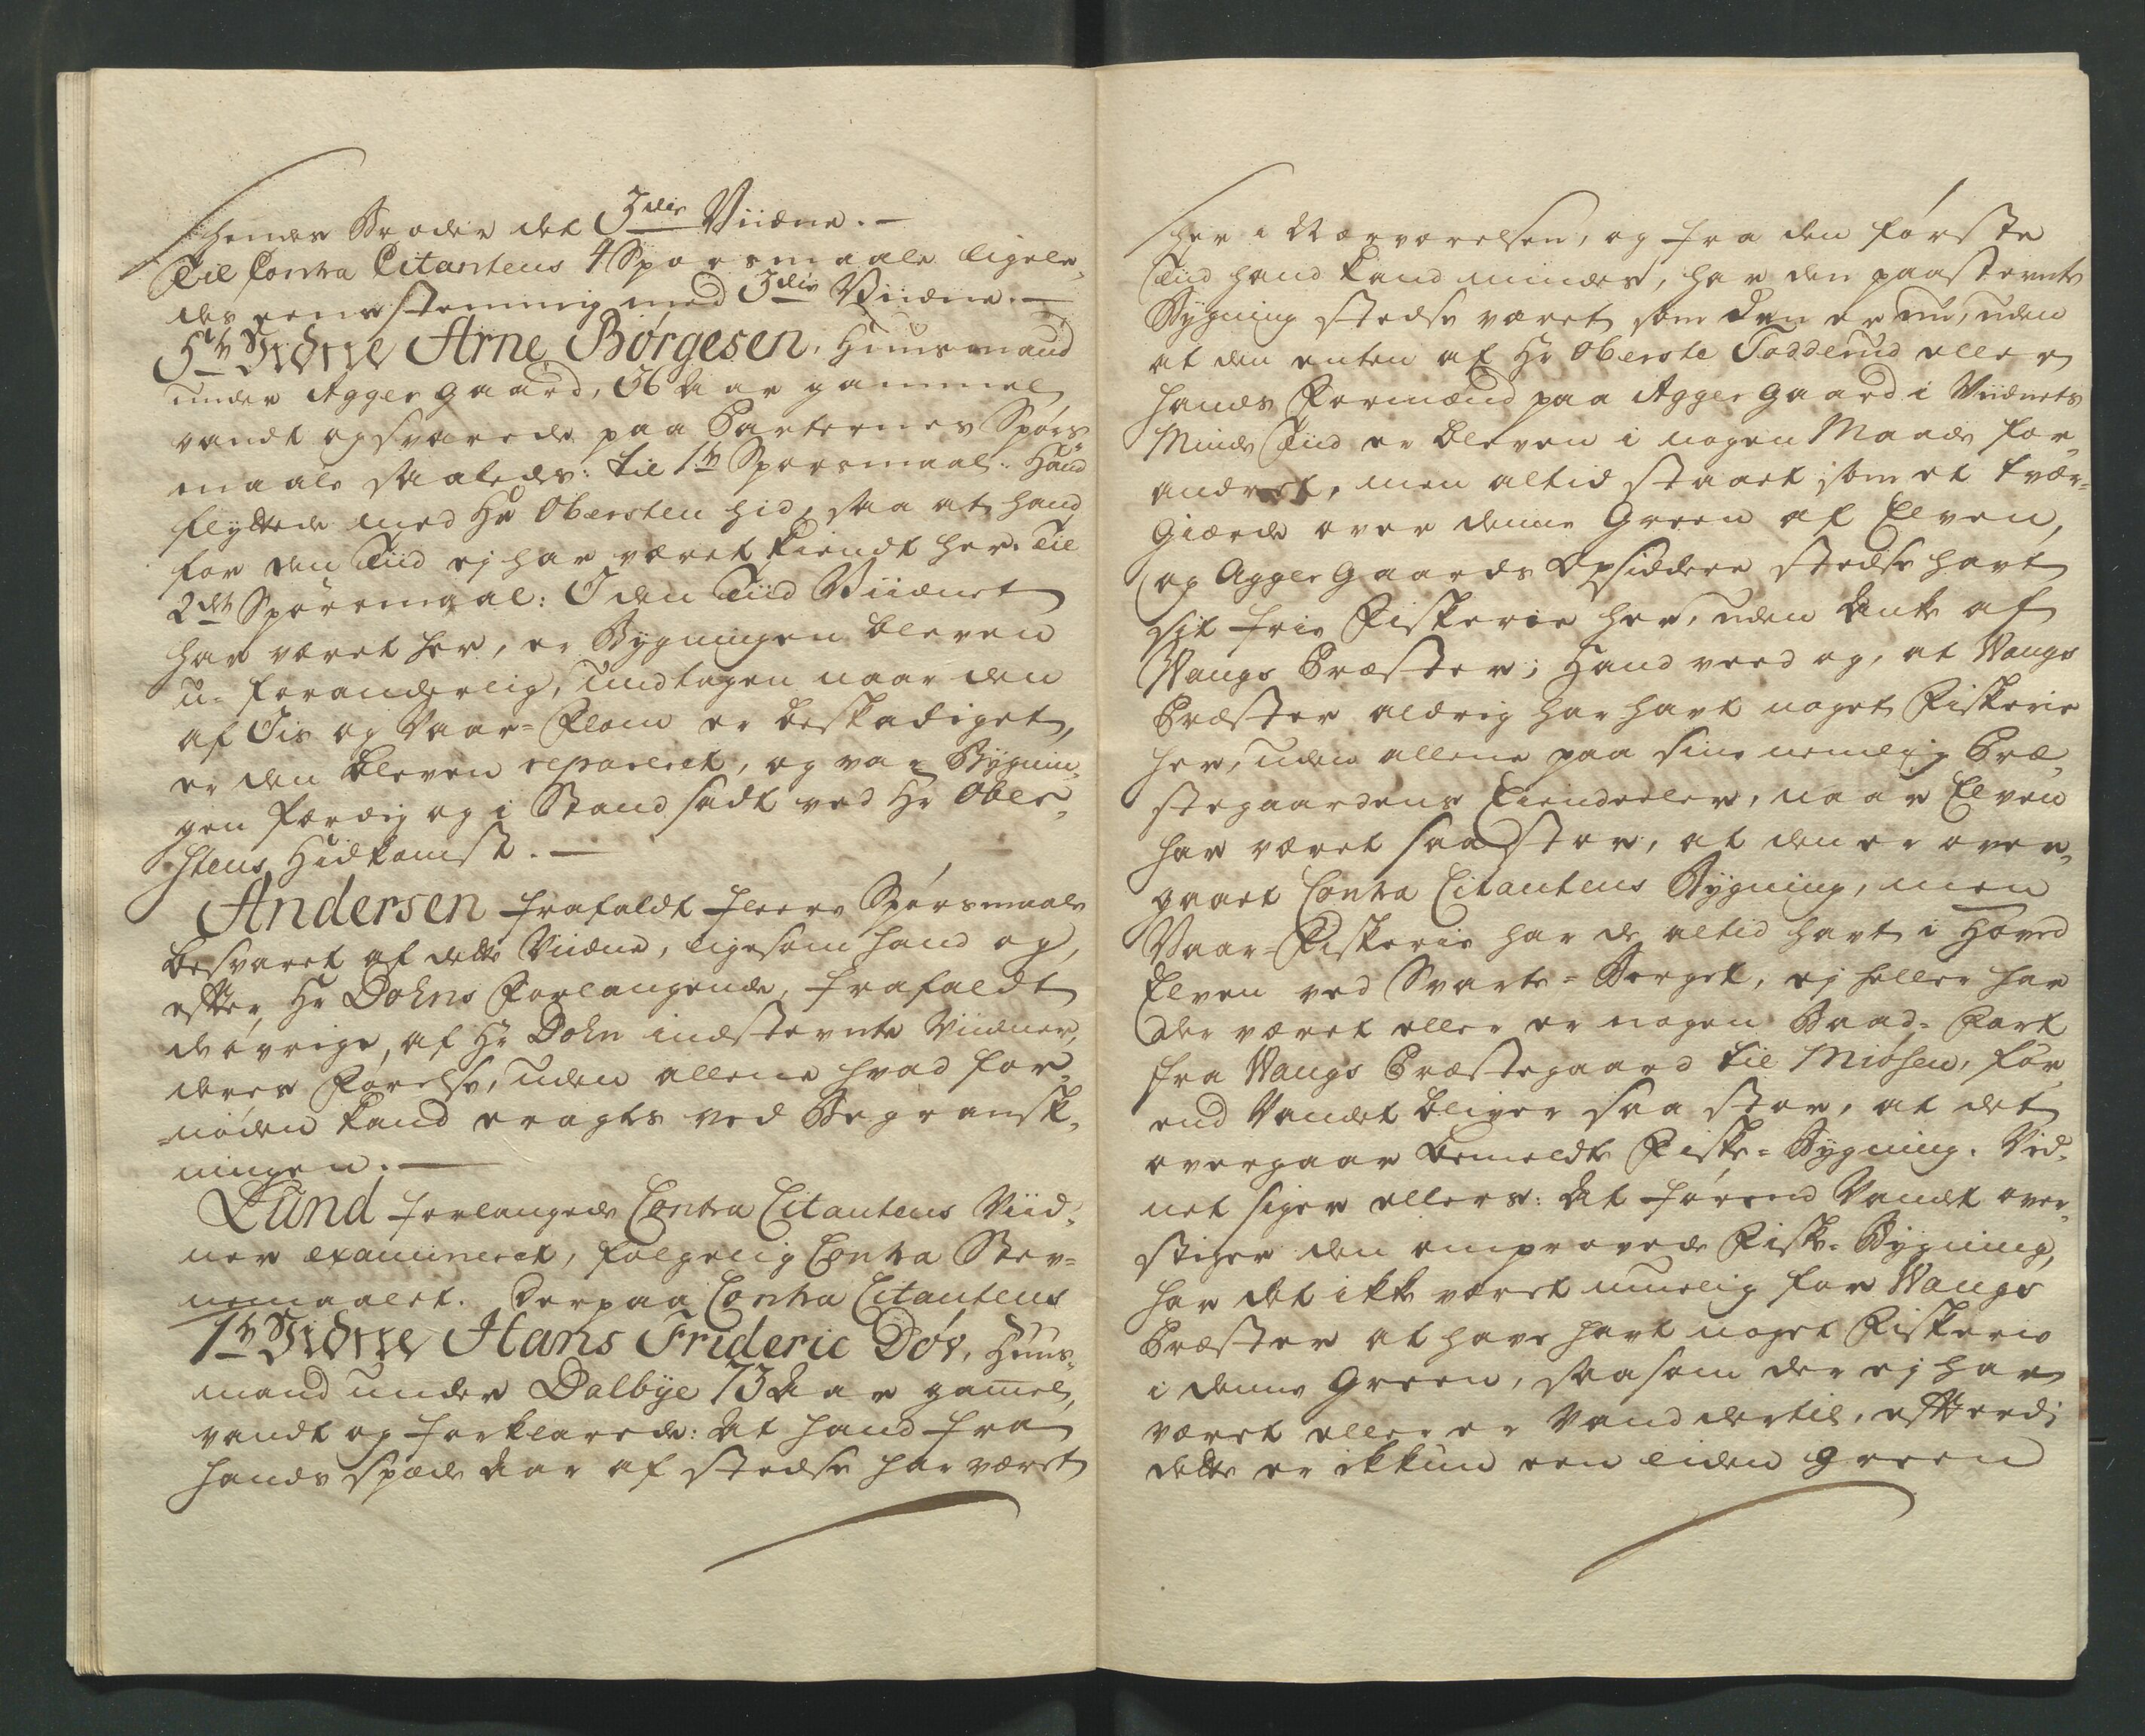 hendes Broder det 3die Viidne. –
Til Contra Citantens 4 Spørsmaale ligele,
des eenstemmig med 3die Viidne. –
5te Vidne Arne Børgesen, Huusmand
under Aggergaard, 36 Aar gammel
vandt og svarede paa Parternes Spørs,
maale saaledes: Til 1te Spørsmaal: Hand
flyttede med Hr Obersten hid, saa at hand
for den Tiid ej har været kiendt her. Til
2det Spørsmaal: I den Tiid Viidnet
har været her, er Bygningen bleven
u-foranderlig, undtagen naar den
af Iis og Vaar-Flom er beskadiget,
er den bleven repareret, og var Bygnin,
gen færdig og i Stand sadt ved Hr Ober,
stens Hidkomst. –
Andersen frafaldt fleere Spørsmaale
besvaret af dette Viidne, ligesom hand og,
efter Hr Dohns Forlangende, frafaldt
de øvrige, af Hr Dohn indstevnte Viidner,
deres Førelse, uden allene hvad for-
nøden kand eragtes ved Begransk,
ningen. –
Lund forlangede Contra Citantens Viid,
ner examineret, følgelig Contra Stev-
nemaalet. Derpaa Contra Citantens
1te Vidne Hans Frideric Døv, Huus-
mand under Dalbÿe 73 Aar gam̅el,
vandt og forklarede: At hand fra
hands spæde Aar af stedse har været
her i Nærværelsen, og fra den første
Tiid hand kand mindes, har den paastevnte
Bygning stedse været som den er nu, uden
at den enten af Hr Oberste Todderud eller
hands Formænd paa Aggergaard i Viidnets
Minde Tiid er bleven i nogen Maade for,
andret, men altid staaet som et tvær-
Giærde over denne Green af Elven,
og Aggergaards Opsiddere stedse havt
sit frie Fiskerie her, uden Anke af
Wangs Præster; Hand veed og, at Wangs
Præster aldrig har havt noget Fiskerie
her, uden allene paa sine nemlig Præ,
stegaardens Eiendeeler, naar Elven
har været saa stor, at den er over,
gaaet Contra Citantens Bygning, men
Vaar-Fiskerie har de altid havt i Hoved
Elven ved Svarte-Berget, ej heller har
der været eller er nogen Baad-Fart
fra Wangs Præstegaard til Miøsen, før
end Vandet bliver saa stor, at det
overgaar bemeldte Fiske-Bygning. Vid,
net siger ellers: At førend Vandet over,
stiger den omprovede Fiske-Bygning,
har det ikke været muelig for Wangs
Præster at have havt noget Fiskerie
i denne Green, saasom der ej har
været eller er Vand dertil, efterdi
dette er ikkun een liden Green